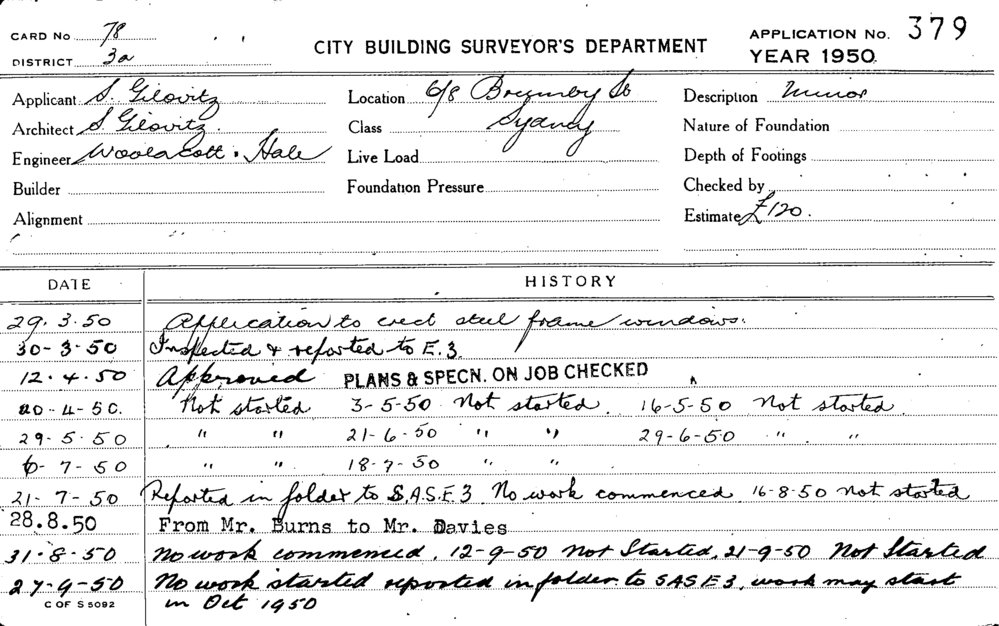 CARD No 78
DISTRICT 3a
CITY BUILDING SURVEYOR'S DEPARTMENT
APPLICATION No. 379
YEAR 1950
Applicant S. Gilovitz
Location 6/8 Brumby St
Description Minor
Architect S. Gilovitz.
Class Sydney
Nature of Foundation
Engineer Woolacott. Hale
Live Load
Depth of Footings
Builder
Foundation Pressure
Checked by
Alignment
Estimate £120.
DATE HISTORY
29.3.50 Application to erect steel frame windows.
30-3-50 Inspected & reported to E.3.
12.4.50 Approved PLANS & SPECN. ON JOB CHECKED
20-4-50. Not started 3-5-50 Not started. 16-5-50 Not started.
29-5-50 " " 21-6-50 " " 29-6-50 " "
6-7-50 " " 18-7-50 " "
21-7-50 Reported in folder to S.A.S.E.3. No work commenced. 16-8-50 not started
28.8.50 From Mr. Burns to Mr. Davies
31-8-50 No work commenced. 12-9-50 Not Started. 21-9-50 Not Started
27-9-50 No work started reported in folder to SASE3. work may start
C OF S 5092 in Oct 1950